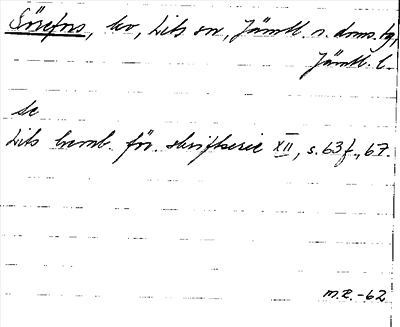 Sörefors, kv, Lits sn, Jämtl. n. doms. tg,
Jämtl. l.
se
Lits hemb. för. skriftserie XII, s. 63 f., 67.
m.e. -62